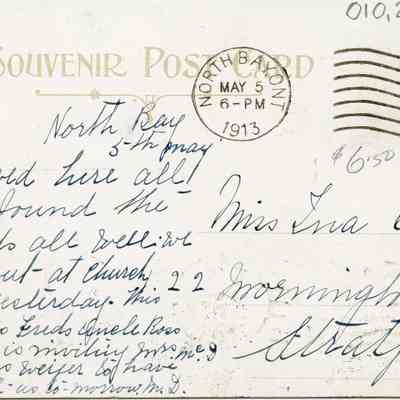 010,2
SOUVENIR POST CARD
NORTH BAY. ONT
MAY 5
6-PM
1913
$6.50
North Bay
5th may
ved here all
ound the
s all well. we
out at Church
yesterday. this
s Freds Uncle Ross
is inviting Mrs Mc.D
to have
us to-morrow. M.D.
Miss Ina
22
Morningto
Stratf